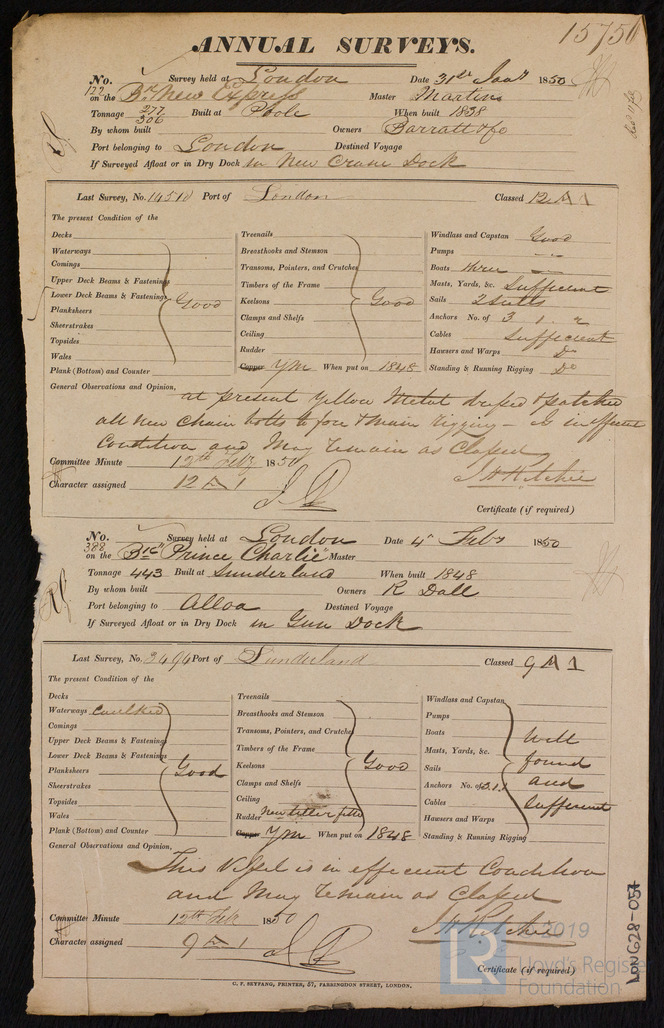 ANNUAL SURVEYS.
15750
No. 122 Survey held at London Date 31st Jany 1850
on the Br New Express Master Martins
Tonnage 277 306 Built at Poole When built 1838
By whom built Owners Barratt & Co
Port belonging to London Destined Voyage
If Surveyed Afloat or in Dry Dock in New Crane Dock
Last Survey, No. 14510 Port of London Classed 12 A 1
The present Condition of the
Decks
Waterways
Comings
Upper Deck Beams & Fastenings
Lower Deck Beams & Fastenings Good
Planksheers
Sheerstrakes
Topsides
Wales
Plank (Bottom) and Counter
Treenails
Breasthooks and Stemson
Transoms, Pointers, and Crutches
Timbers of the Frame
Keelsons Good
Clamps and Shelfs
Ceiling
Rudder
Copper YM When put on 1848
Windlass and Capstan Good
Pumps
Boats three
Masts, Yards, &c. Sufficient
Sails 2 Suits
Anchors No. of 3 . 1 . 2
Cables Sufficient
Hawsers and Warps Do
Standing & Running Rigging Do
General Observations and Opinion, at present Yellow Metal & patched
all new Chain bolts to fore & main rigging – Is in efficient
Condition and May remain as Classed
J H Ritchie
Committee Minute 12th Feby 1850
Character assigned 12 A 1
Certificate (if required)
No. 388 Survey held at London Date 4th Feby 1850
on the Bk "Prince Charlie" Master
Tonnage 443 Built at Sunderland When built 1848
By whom built Owners R Dall
Port belonging to Alloa Destined Voyage
If Surveyed Afloat or in Dry Dock in Gun Dock
Last Survey, No. 3494 Port of Sunderland Classed 9 A 1
The present Condition of the
Decks
Waterways Caulked
Comings
Upper Deck Beams & Fastenings
Lower Deck Beams & Fastenings
Planksheers Good
Sheerstrakes
Topsides
Wales
Plank (Bottom) and Counter
Treenails
Breasthooks and Stemson
Transoms, Pointers, and Crutches
Timbers of the Frame
Keelsons Good
Clamps and Shelfs
Ceiling
Rudder New tiller fitted
Copper YM When put on 1848
Windlass and Capstan
Pumps
Boats Well
Masts, Yards, &c.
Sails found
Anchors No. of 3.1.1 and
Cables Sufficient
Hawsers and Warps
Standing & Running Rigging
General Observations and Opinion,
This Vessel is in efficient Condition
and May remain as Classed
J H Ritchie
Committee Minute 12th Feb 1850
Character assigned 9 A 1
Certificate (if required)
C. F. SEYFANG, PRINTER, 57, FARRINGDON STREET, LONDON.
LON628-0571
2019
LR
Lloyd's Register
Foundation